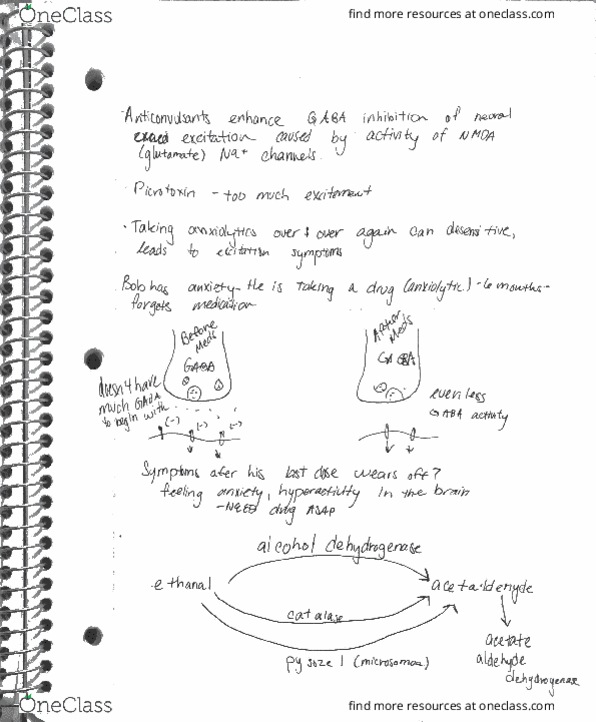 OneClass
find more resources at oneclass.com
Anticonvulsants enhance GABA inhibition of neural
excitation caused by activity of NMDA
(glutamate) Na+ channels.
Picrotoxin - too much excitement
· Taking anxiolytics over & over again can desensitive,
leads to excitation symptoms
Bob has anxiety- He is taking a drug (anxiolytic) - 6 months-
forgets medication
Before
Meds
GABA
doesn't have
much GABA
to begin with
(-)
(-)
(-)
After
Meds
GABA
even less
GABA activity
Symptoms after his last dose wears off?
feeling anxiety, hyperactivity in the brain
-NEED drug ASAP
alcohol dehydrogenase
ethanal
acetaldehyde
catalase
(microsomal)
acetate
aldehyde
dehydrogenase
OneClass
find more resources at oneclass.com